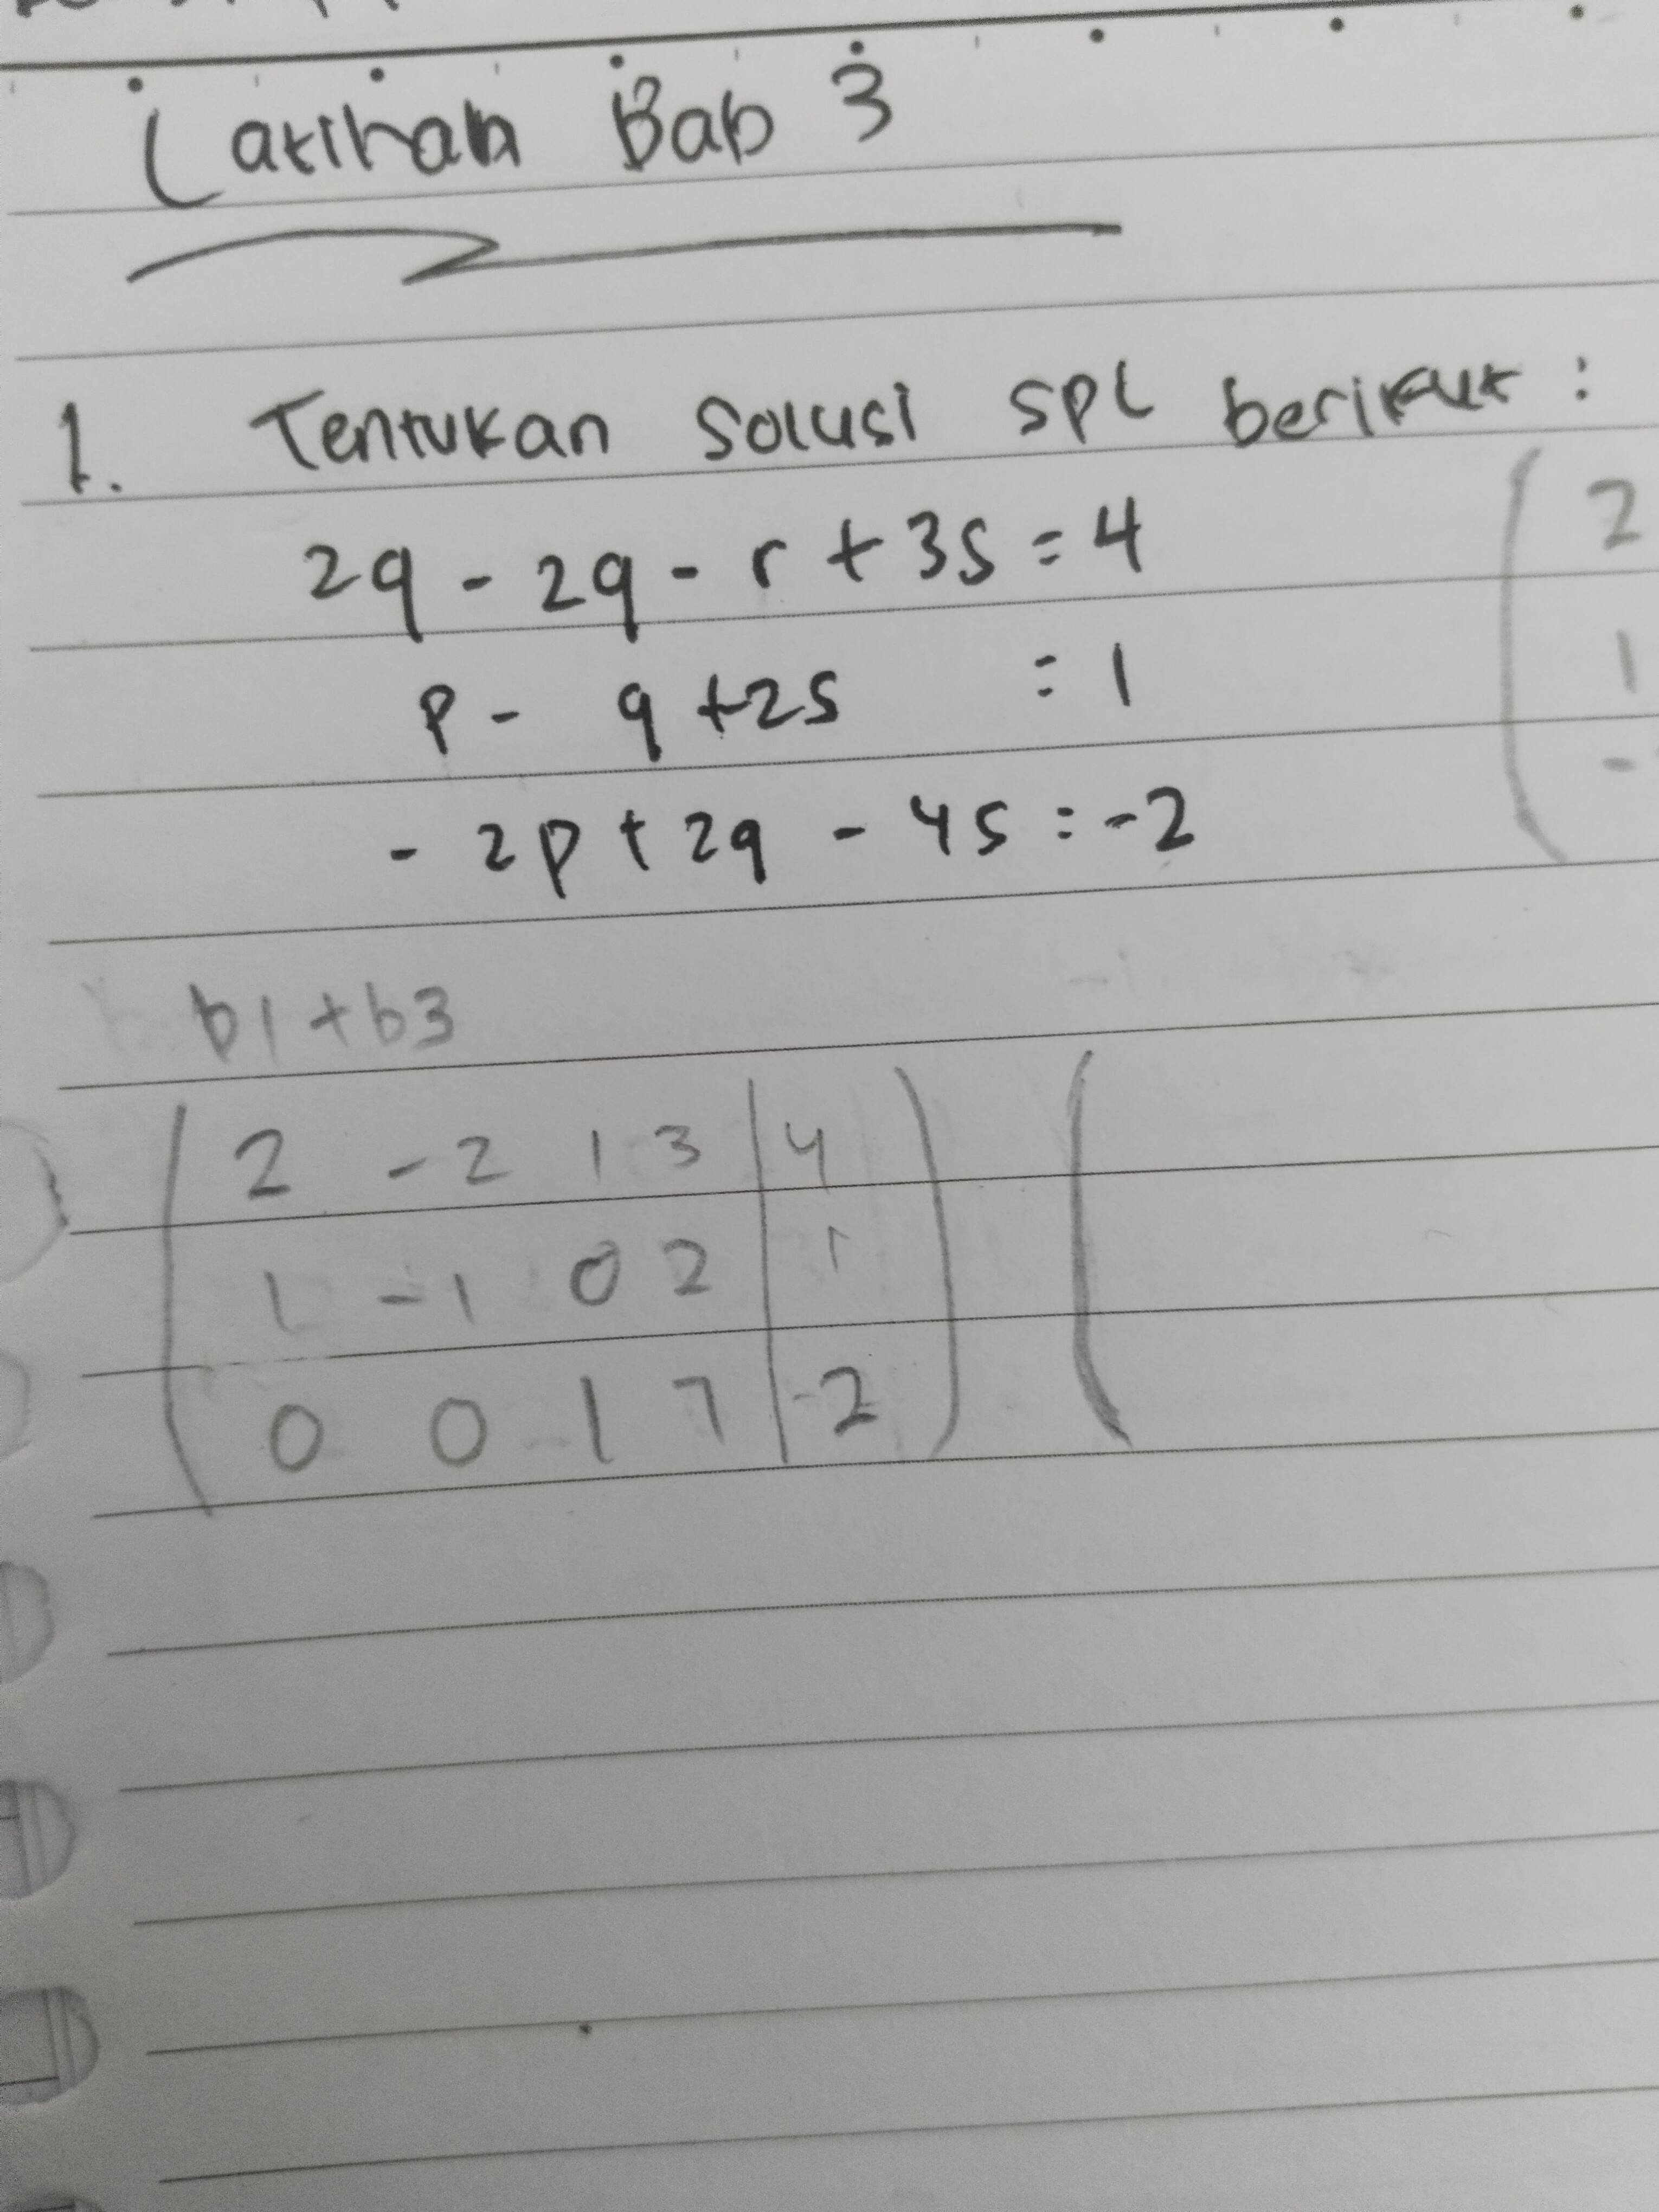 Latihan Bab 3
1. Tentukan Solusi SPL berikut :
2q - 2q - r + 3s = 4
p - q + 2s = 1
- 2p + 2q - 4s = -2
2
1
-
b1 + b3
2 -2 1 3 | 4
1 -1 0 2 | 1
0 0 1 7 | -2